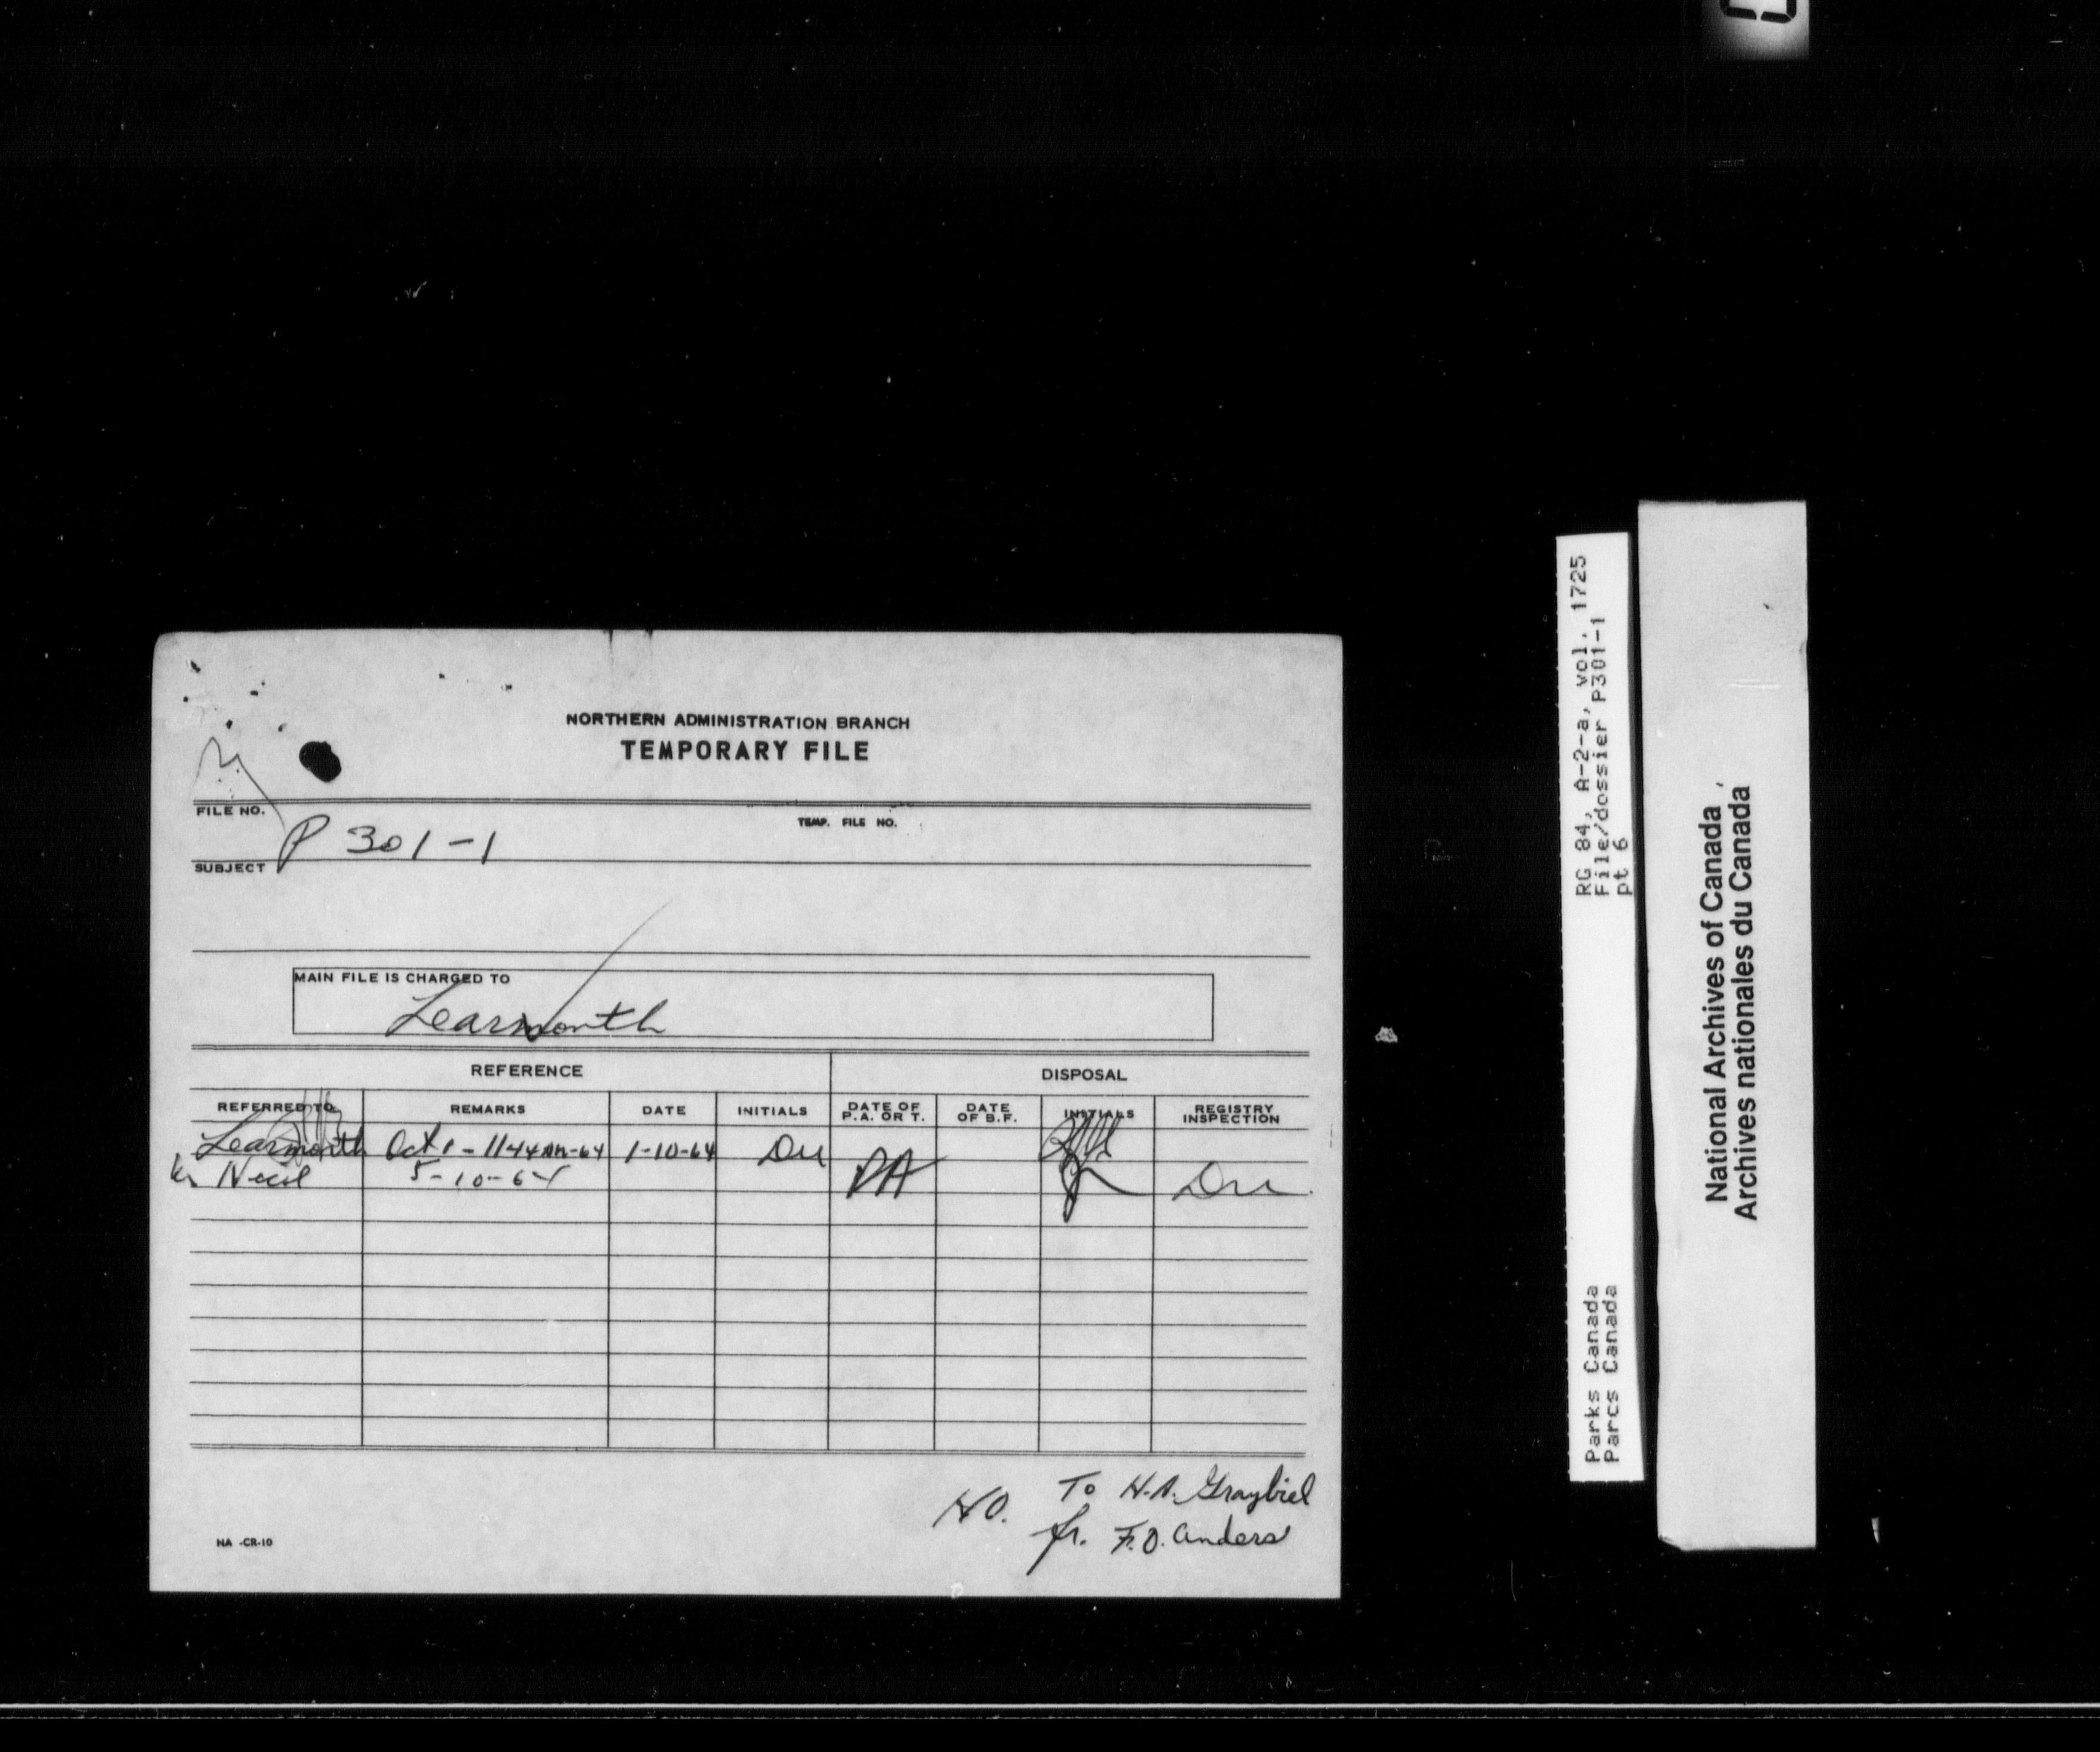 NORTHERN ADMINISTRATION BRANCH
TEMPORARY FILE
FILE NO. P 301-1
TEMP. FILE NO.
SUBJECT
MAIN FILE IS CHARGED TO
Learmonth
REFERENCE DISPOSAL
REFERRED TO REMARKS DATE INITIALS DATE OF P.A. OR T. DATE OF B.F. INITIALS REGISTRY INSPECTION
Learmonth Oct 1 - 11-44 AM-64 1-10-64
5-10-64 PA
To H.A. Graybiel
fr. F.O. Anders
NA -CR-10
RG 84, A-2-a, vol. 1725
File/dossier P301-1
pt 6
Parks Canada
Parcs Canada
National Archives of Canada
Archives nationales du Canada